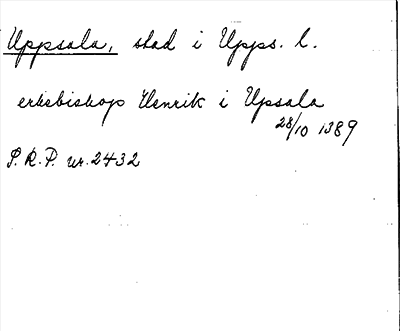 Uppsala, stad i Upps. l.
erkebiskop Henrik i Upsala
28/10 1389
S.R.P. nr. 2432